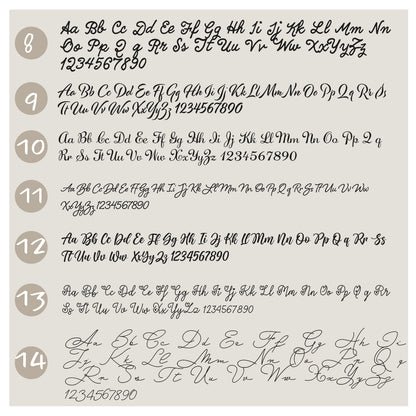 8
Aa Bb Cc Dd Ee Ff Gg Hh Ii Jj Kk Ll Mm Nn
Oo Pp Qq Rr Ss Tt Uu Vv Ww XxYyZz
1234567890
9
Aa Bb Cc Dd Ee Ff Gg Hh Ii Jj Kk Ll Mm Nn Oo Pp Qq Rr Ss
Tt Uu Vv Ww XxYyZz 1234567890
10
Aa Bb Cc Dd Ee Ff Gg Hh Ii Jj Kk Ll Mm Nn Oo Pp Qq
Rr Ss Tt Uu Vv Ww XxYyZz 1234567890
11
Aa Bb Cc Dd Ee Ff Gg Hh Ii Jj Kk Ll Mm Nn Oo Pp Qq Rr Ss Tt Uu Vv Ww
XxYyZz 1234567890
12
Aa Bb Cc Dd Ee Ff Gg Hh Ii Jj Kk Ll Mm Nn Oo Pp Qq Rr Ss
Tt Uu Vv Ww XxYyZz 1234567890
13
Aa Bb Cc Dd Ee Ff Gg Hh Ii Jj Kk Ll Mm Nn Oo Pp Qq Rr
Ss Tt Uu Vv Ww XxYyZz 1234567890
14
Aa Bb Cc Dd Ee Ff Gg Hh Ii
Jj Kk Ll Mm Nn Oo Pp Qq
Rr Ss Tt Uu Vv Ww XxYyZz
1234567890